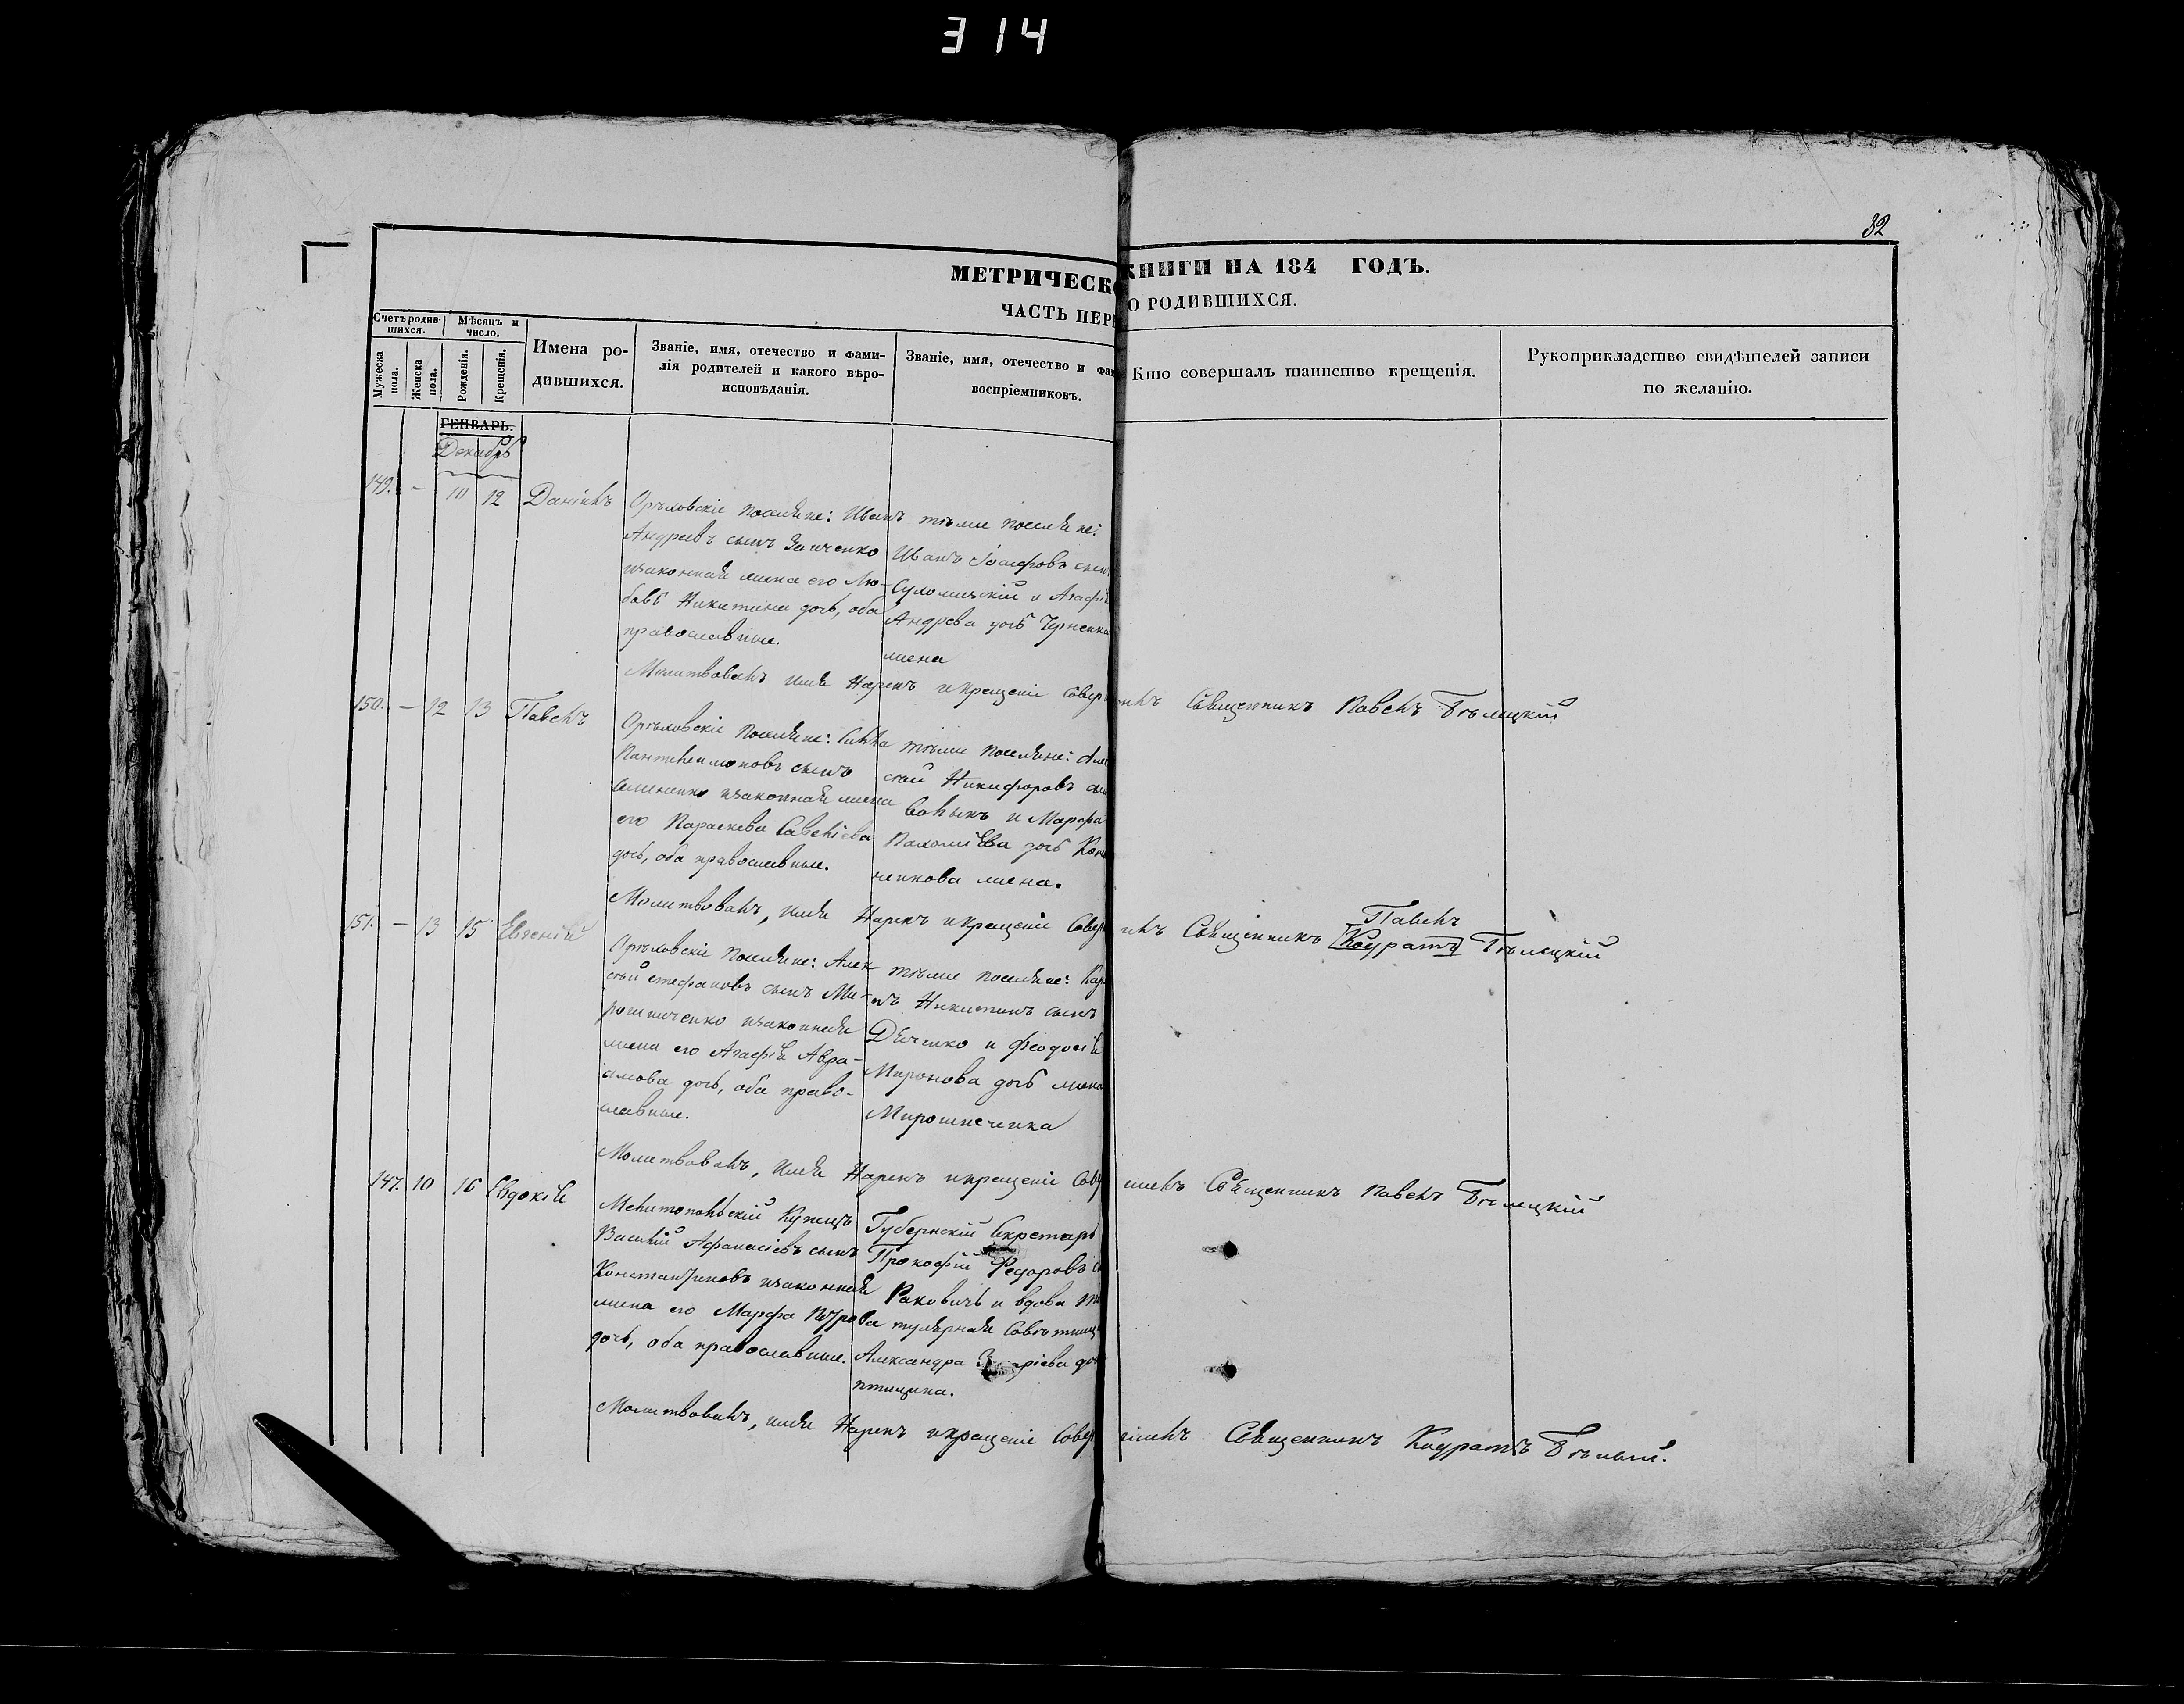 314
32
МЕТРИЧЕСКО КНИГИ НА 184 ГОДЪ.
ЧАСТЬ ПЕР О РОДИВШИХСЯ.
Счетъ родив-
шихся.
Мѣсяцъ и
число.
Мужеска
пола.
Женска
пола.
Рожденія.
Крещенія.
Имена ро-
дившихся.
Званіе, имя, отечество и фами-
лія родителей и какого вѣро-
исповѣданія.
Званіе, имя, отечество и фам
воспріемниковъ.
Кто совершалъ таинство крещенія.
Рукоприкладство свидѣтелей записи
по желанію.
ГЕНВАРЬ.
Декабрь
149. — 10 12 Даніилъ
Орѣховскіе поселяне: Иванъ
Андреевъ сынъ Заиченко
изаконная жена его Лю-
бовь Никитина дочь, оба
православные.
тѣже поселяне:
Иванъ Іосифовъ сынъ
и Агафія
Андреева дочь Черненкова
жена
Молитвовалъ имя Нарекъ и крещеніе Совершилъ Священникъ Павелъ Бѣлецкій
150. — 12 13 Павелъ
Орѣховскіе Поселяне: Сила
Пантелеимоновъ сынъ
изаконная жена
его Параскева Савеліева
дочь, оба православные.
тѣже поселяне: Але
ксѣй Никифоровъ сынъ
и Марфа
Пахоміева дочь Кон
ченкова жена.
Молитвовалъ, имя Нарекъ и крещеніе Совершилъ Священникъ Павелъ [Кодратъ] Бѣлецкій
151. — 13 15 Евгеній
Орѣховскіе Поселяне: Алек-
сѣй Стефановъ сынъ Ми-
рошниченко изаконная
жена его Агафія Авра-
амова дочь, оба право-
славные.
тѣже поселяне: Кар
пъ Никитинъ сынъ
Дяченко и Феодосія
Миронова дочь жена
Мирошниченка
Молитвовалъ, имя Нарекъ и крещеніе Совершилъ Священникъ Павелъ Бѣлецкій
147. 10 16 Евдокія
Мелитопольскій Купецъ
Василій Афанасіевъ сынъ
Константиновъ изаконная
жена его Марфа Петрова
дочь, оба православные.
Губернскій Секретарь
Прокофій Федоровъ с
Раковичъ и вдова ти
тулярная Совѣтница
Александра дочь
птицына.
Молитвовалъ, имя Нарекъ и крещеніе Совершилъ Священникъ Кодратъ Бѣлый.